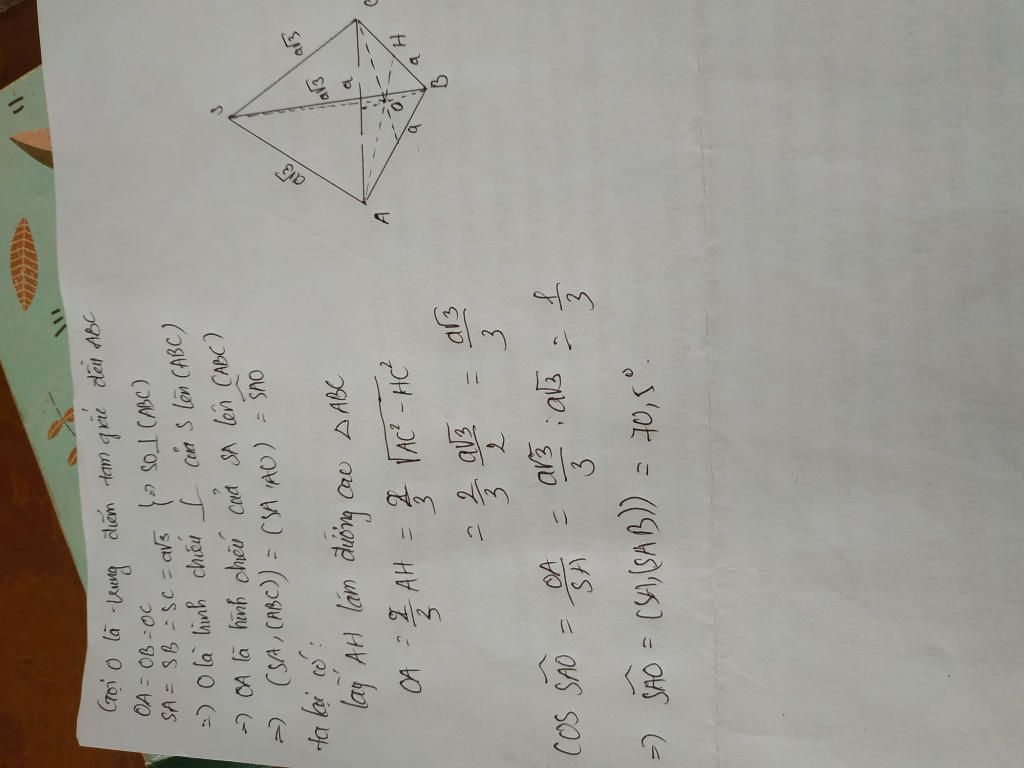 Gọi O là trung điểm tam giác đều ABC
OA = OB = OC
SA = SB = SC = a√3 } => SO ⊥ (ABC)
=) O là hình chiếu ⊥ của S lên (ABC)
=) OA là hình chiếu của SA lên (ABC)
=> (SA, (ABC)) = (SA, AO) = SAO
ta lại có:
lấy AH làm đường cao △ ABC
OA = 2/3 AH = 2/3 √(AC² - HC²)
= 2/3 a√3/2 = a√3/3
COS SAO = OA/SA = a√3/3 : a√3 = 1/3
=) SAO = (SA, (SAB)) = 70,5°.
S
a√3
a√3
a√3
a
H
a
O
B
a
A
C